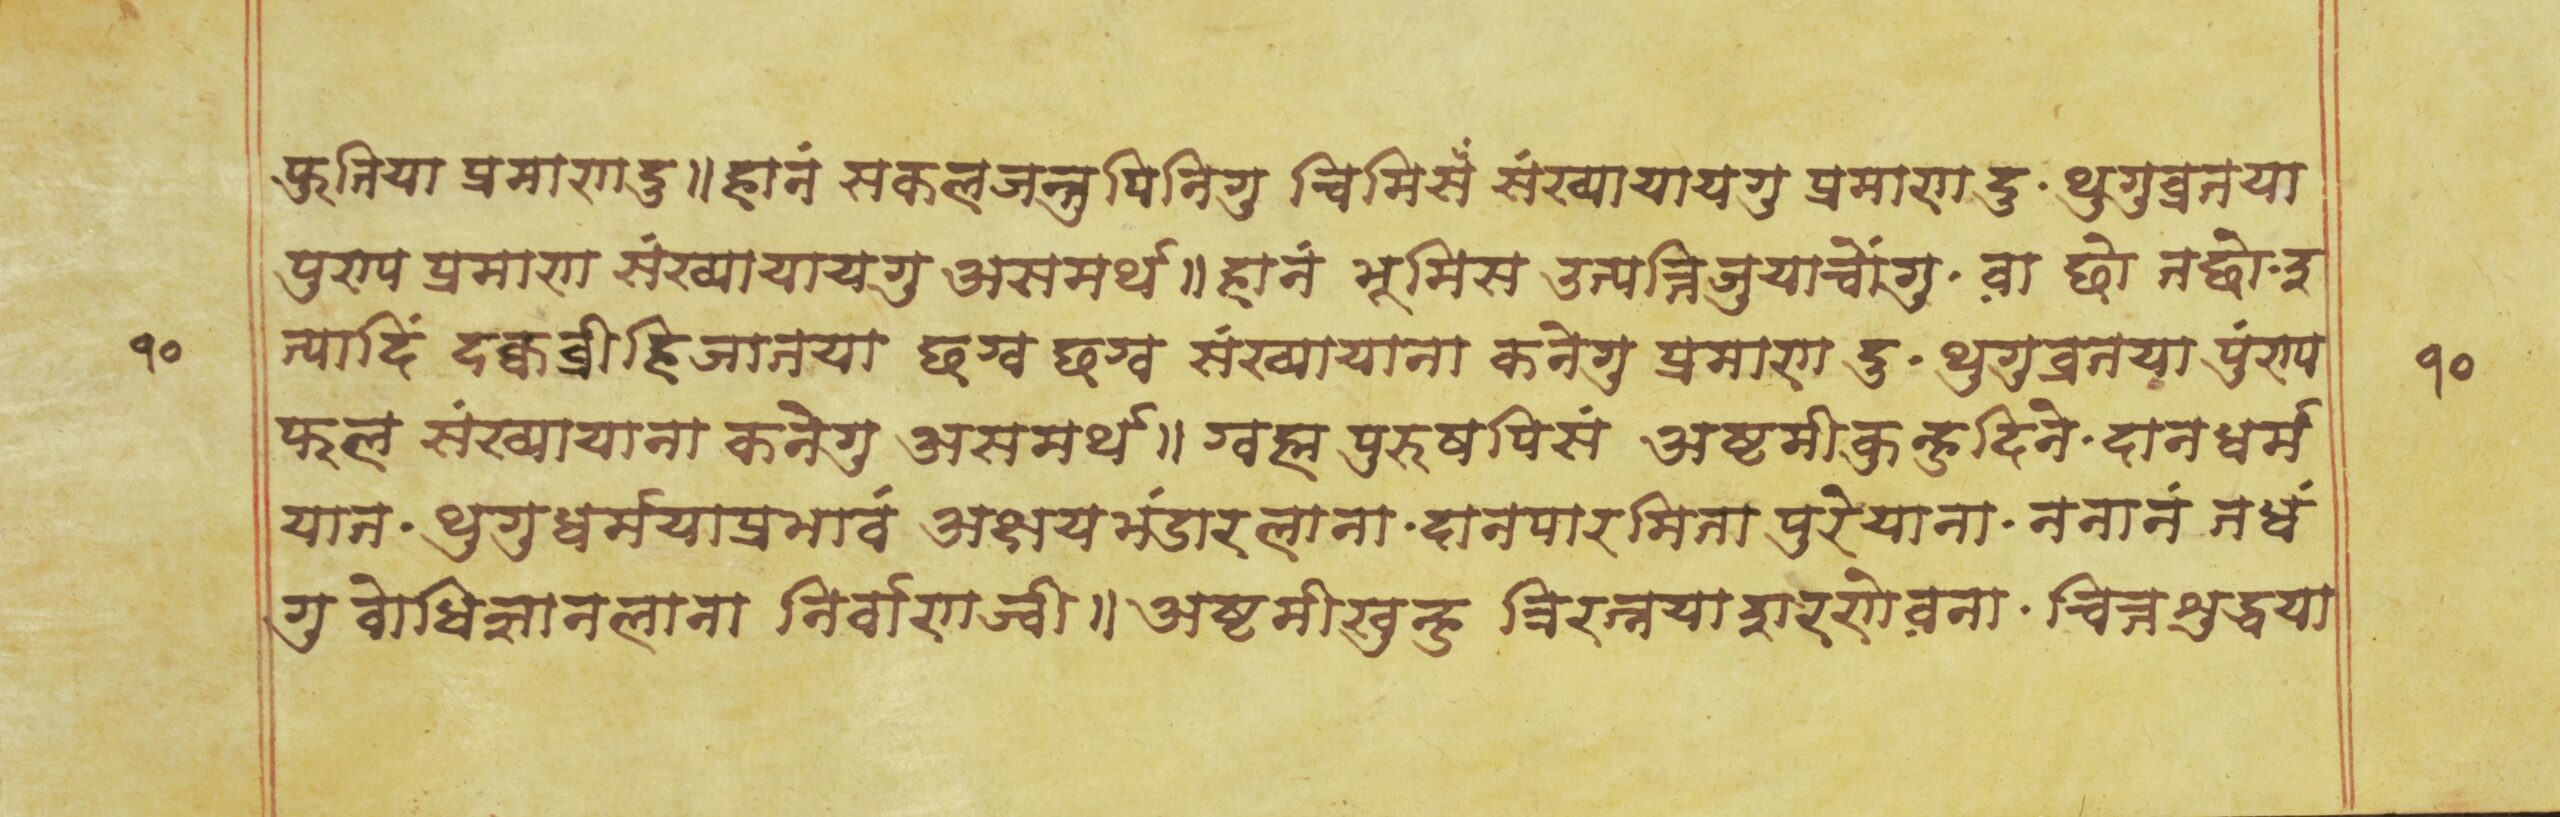 फुतिया प्रमाणदु॥ हानं सकलजन्तुपिनिगु चिमिसँ संख्यायायगु प्रमाण दु· थुगुव्रतया
पुण्य प्रमाण संख्यायायगु असमर्थ॥ हानं भूमिस उत्पत्तिजुयाचोंगु· वा छो तछो·इ
त्यादिं दक्वव्रीहिजातया छग्व छग्व संख्यायाना कनेगु प्रमाण दु· थुगुव्रतया पुंण्य
फल संख्यायाना कनेगु असमर्थ॥ ग्वह्म पुरुषपिसं अष्टमीकुन्हुदिने· दानधर्म
यात· थुगुधर्मयाप्रभावं अक्षयभंडारलाना· दानपारमिता पुरेयाना· ननानं तधं
१०
१०
गु बोधिज्ञानलाना निर्वाणज्वी॥ अष्टमीखुन्हु त्रिरत्नयाशरणेवना· चित्तशुद्धया